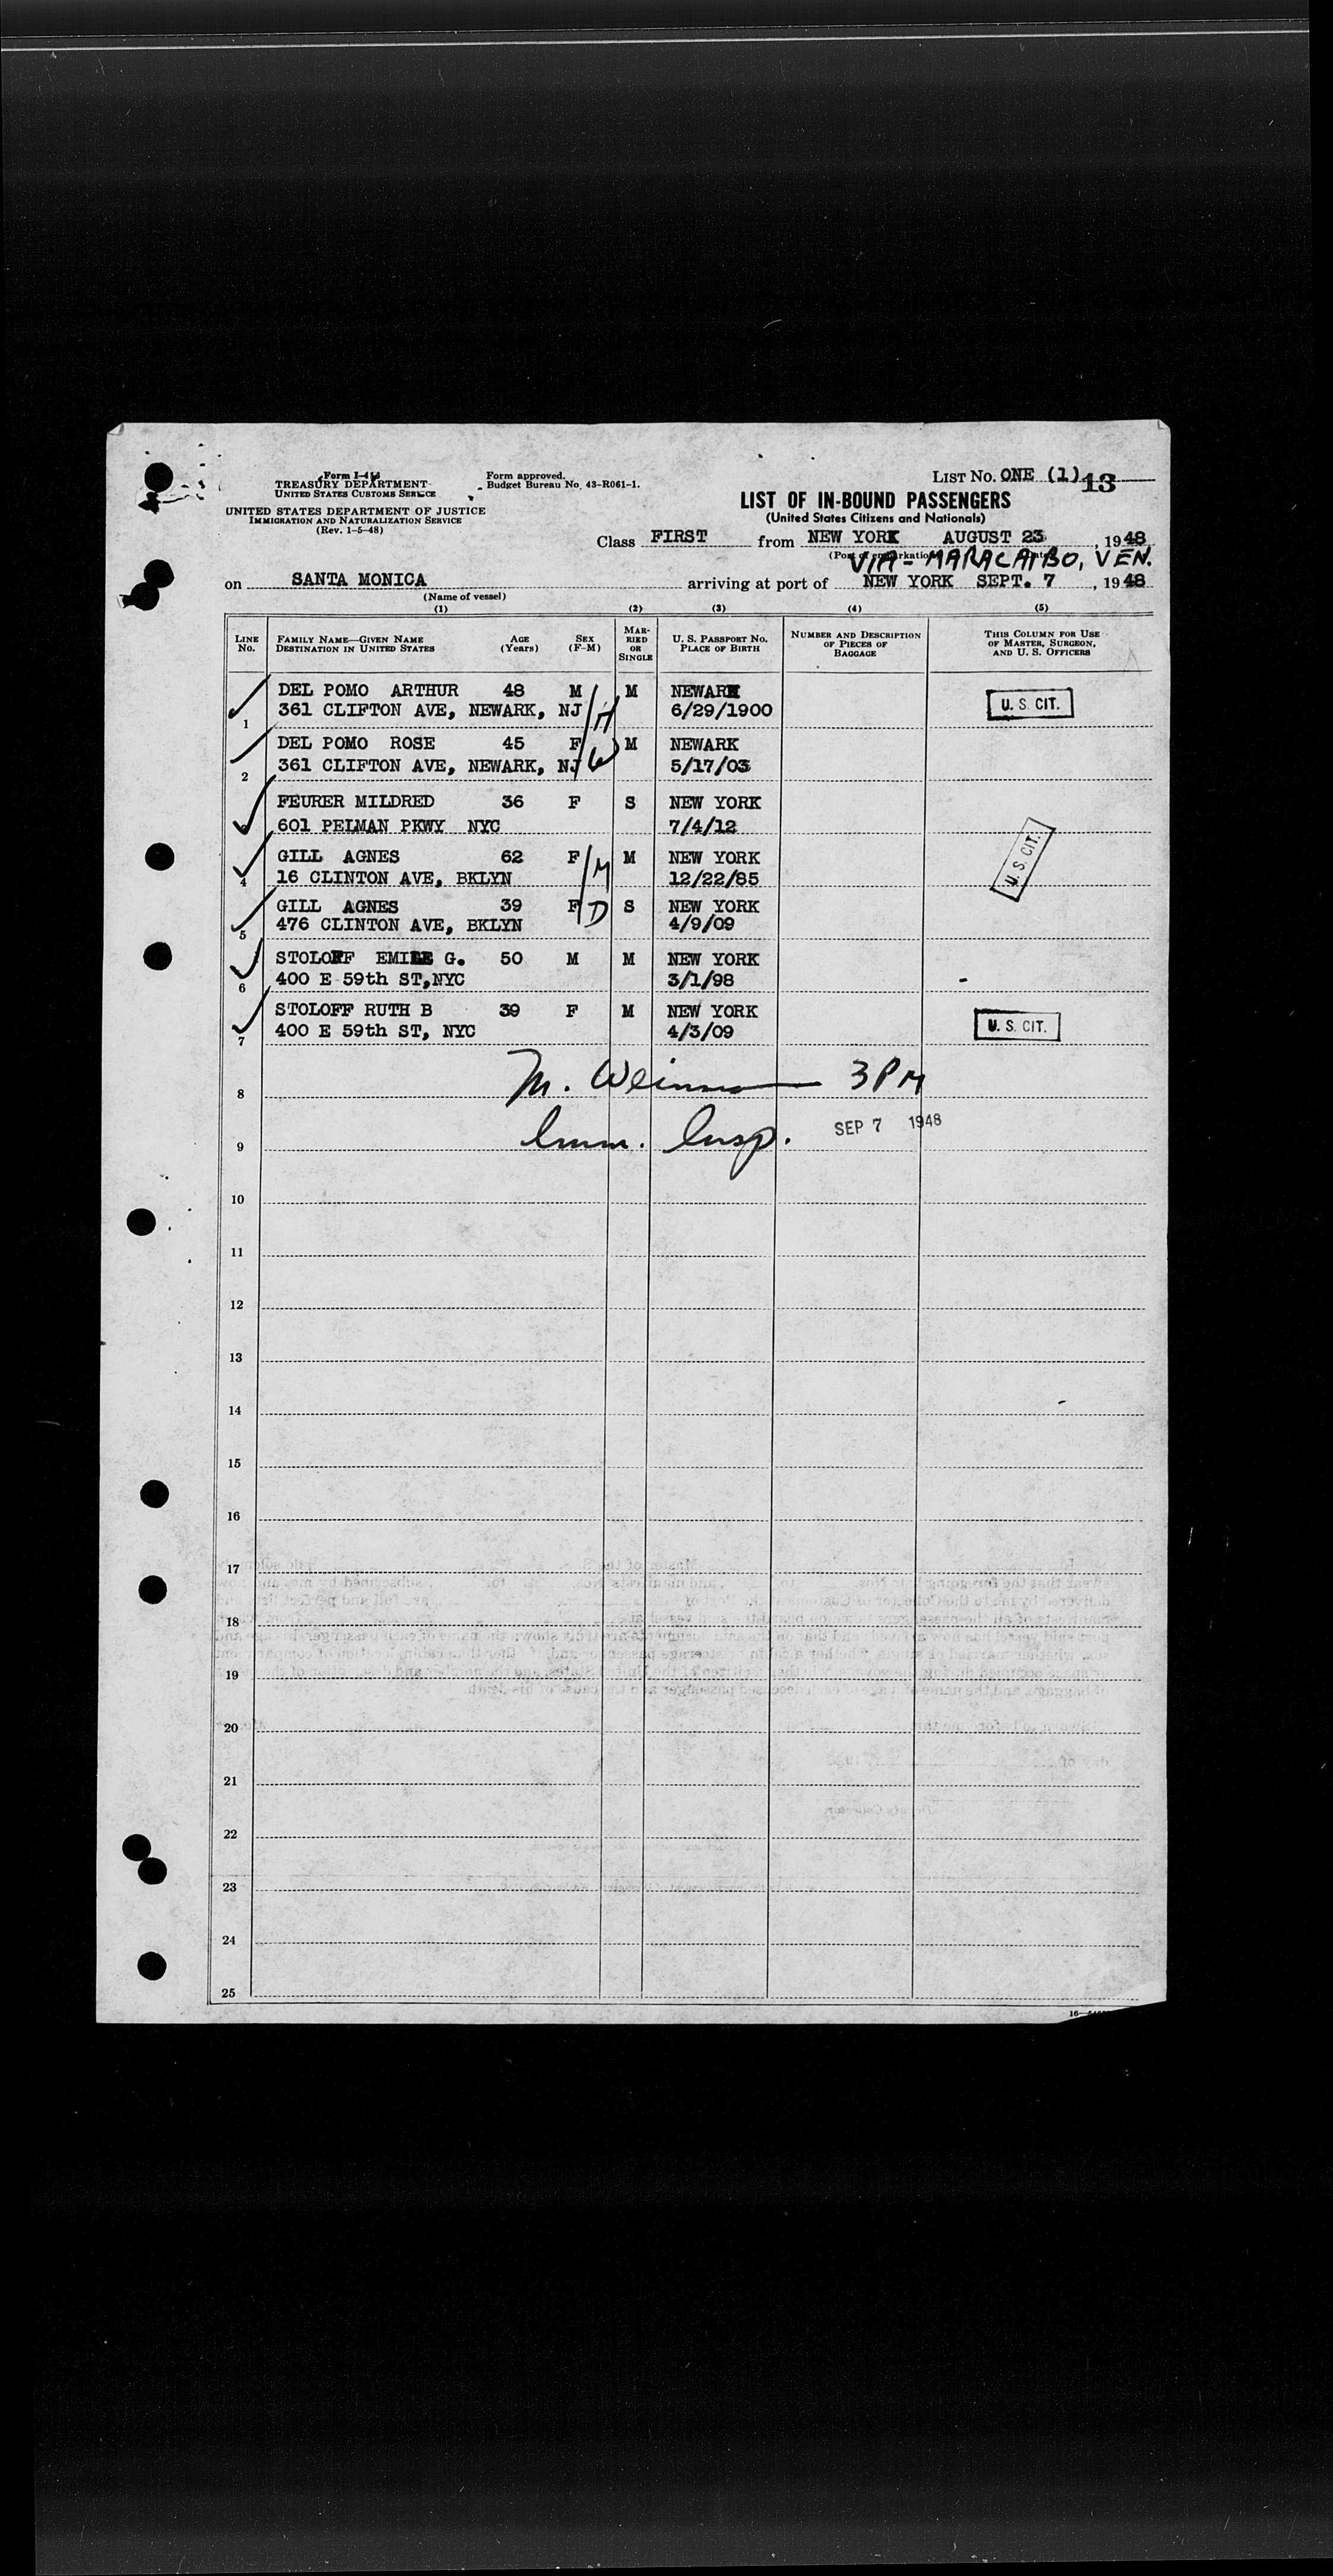 Form I-415
TREASURY DEPARTMENT
UNITED STATES CUSTOMS SERVICE
Form approved.
Budget Bureau No. 43-R061-1.
LIST NO. ONE (1) 13
UNITED STATES DEPARTMENT OF JUSTICE
IMMIGRATION AND NATURALIZATION SERVICE
(Rev. 1-5-48)
LIST OF IN-BOUND PASSENGERS
(United States Citizens and Nationals)
Class FIRST from NEW YORK AUGUST 23, 1948
VIA - MARACAIBO, VEN.
on SANTA MONICA arriving at port of NEW YORK SEPT. 7, 1948
(Name of vessel)
(1) (2) (3) (4) (5)
LINE NO. FAMILY NAME—GIVEN NAME DESTINATION IN UNITED STATES AGE (Years) SEX (F-M) MARRIED OR SINGLE U. S. PASSPORT NO. PLACE OF BIRTH NUMBER AND DESCRIPTION OF PIECES OF BAGGAGE THIS COLUMN FOR USE OF MASTER, SURGEON, AND U. S. OFFICERS
DEL POMO ARTHUR 48 M M NEWARK U. S. CIT.
1 361 CLIFTON AVE, NEWARK, NJ H 6/29/1900
DEL POMO ROSE 45 F M NEWARK
2 361 CLIFTON AVE, NEWARK, NJ W 5/17/03
FEURER MILDRED 36 F S NEW YORK
3 601 PELMAN PKWY NYC 7/4/12
GILL AGNES 62 F M NEW YORK U. S. CIT.
4 16 CLINTON AVE, BKLYN M 12/22/85
GILL AGNES 39 F D S NEW YORK
5 476 CLINTON AVE, BKLYN 4/9/09
STOLOFF EMILE G. 50 M M NEW YORK
6 400 E 59th ST,NYC 3/1/98
STOLOFF RUTH B 39 F M NEW YORK U. S. CIT.
7 400 E 59th ST, NYC 4/3/09
8 M. Weinman 3 PM
9 Imm. Insp. SEP 7 1948
10
11
12
13
14
15
16
17
18
19
20
21
22
23
24
25